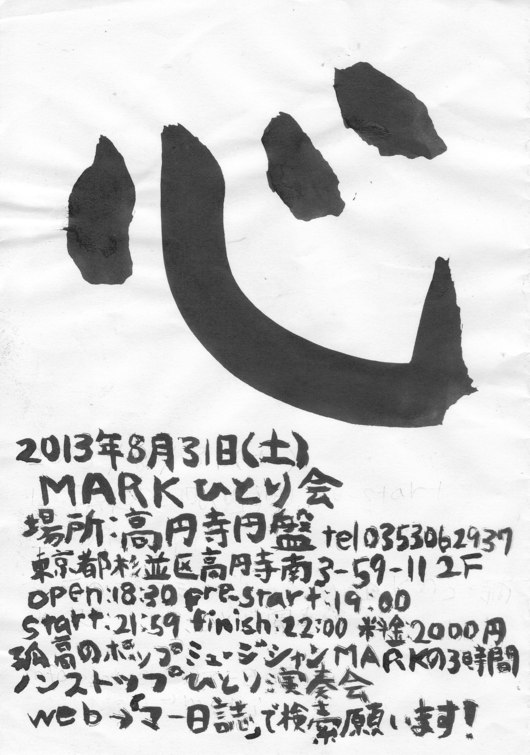 心
2013年8月31日(土)
MARKひとり会
場所:高円寺円盤 tel 0353062937
東京都杉並区高円寺南3-59-11 2F
open:18:30 pre.start:19:00
start:21:59 finish:22:00 料金:2000円
孤高のポップミュージシャンMARKの3時間
ノンストップひとり演奏会
web→「マー日誌」で検索願います!